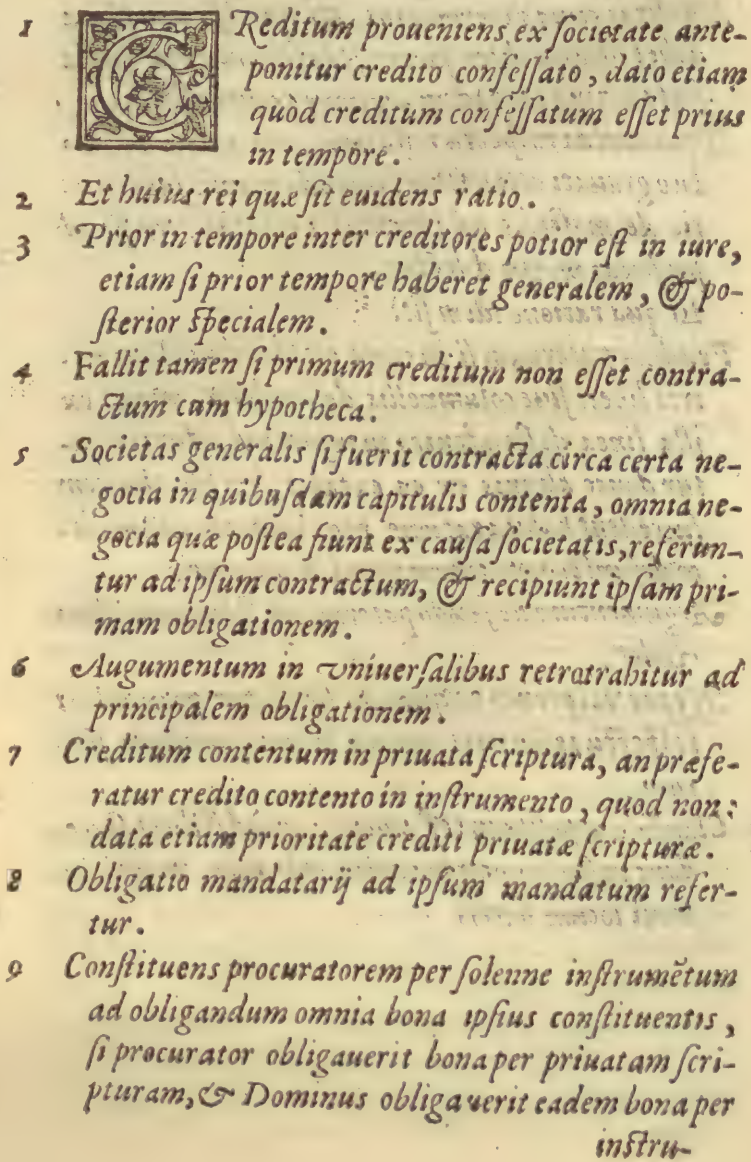 1 CReditum proueniens ex ſocietate ante-
ponitur credito confeſſato, dato etiam
quòd creditum confeſſatum eſſet prius
in tempore.
2 Et huius rei quæ ſit euidens ratio.
3 Prior in tempore inter creditores potior eſt in iure,
etiam ſi prior tempore haberet generalem, & po-
ſterior ſpecialem.
4 Fallit tamen ſi primum creditum non eſſet contra-
ctum cum hypotheca.
5 Societas generalis ſi fuerit contracta circa certa ne-
gocia in quibuſdam capitulis contenta, omnia ne-
gocia quæ poſtea fiunt ex cauſa ſocietatis, referun-
tur ad ipſum contractum, & recipiunt ipſam pri-
mam obligationem.
6 Augumentum in vniuerſalibus retrotrahitur ad
principalem obligationem.
7 Creditum contentum in priuata ſcriptura, an præfe-
ratur credito contento in inſtrumento, quòd non:
data etiam prioritate crediti priuatæ ſcripturæ.
8 Obligatio mandatarij ad ipſum mandatum refer-
tur.
9 Conſtituens procuratorem per ſolenne inſtrumẽtum
ad obligandum omnia bona ipſius conſtituentis,
ſi procurator obligauerit bona per priuatam ſcri-
pturam, & Dominus obligauerit eadem bona per
inſtru-